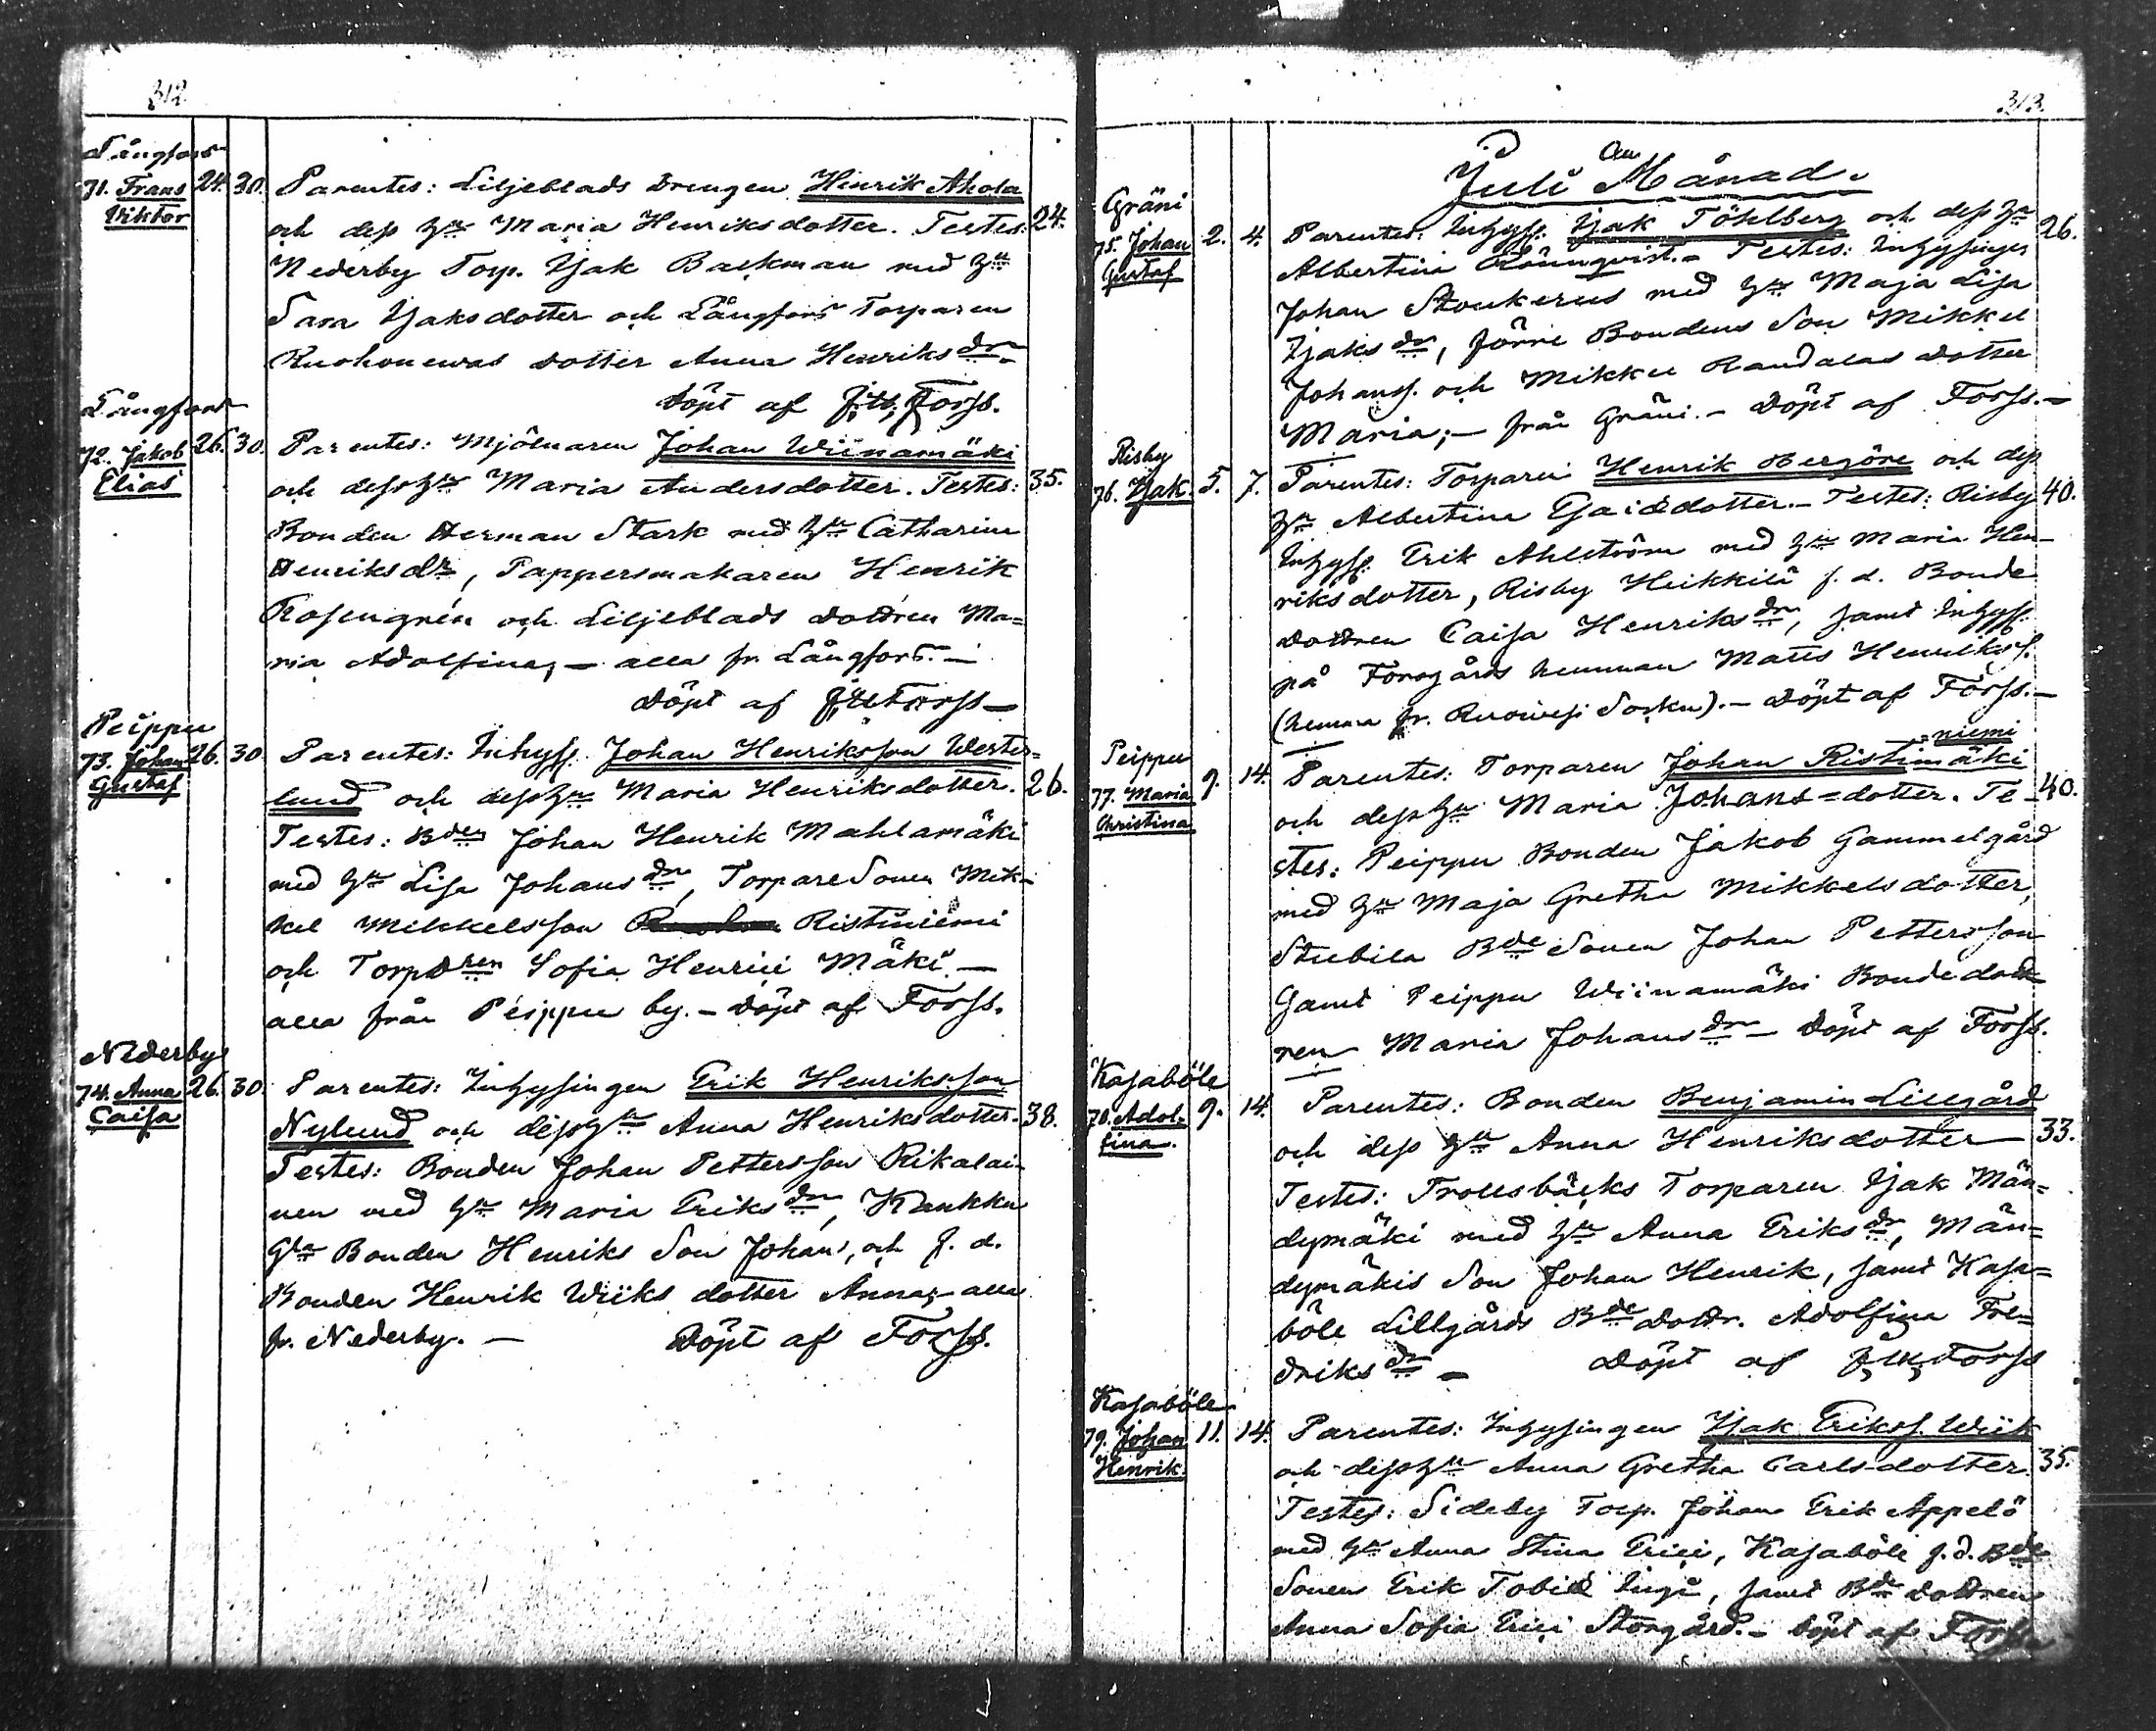 312
Långfors
71. Frans 24. 30. Parentes: Liljeblads Drengen Henrik Ahola
Viktor och dess h:u Maria Henriksdotter. Testes: 24.
Nederby Torp. Isak Backman med h:u
Sara Isaksdotter och Långfors Torparen
Ruohonewas dotter Anna Henriks dr.
Döpt af Forss.
Långfors
72. Jakob 26. 30. Parentes: Mjölnaren Johan Wiinamäki
Elias och dess h:u Maria Andersdotter. Testes: 35.
Bonden Herman Stark med h:u Catharina
Henriksdr, Pappersmakaren Henrik
Rosengrén och Liljeblads dottren Ma=
ria Adolfina, — alla fr Långfors. —
Döpt af Forss —
Peippu
73. Johan 26. 30 Parentes: Inhyss. Johan Henriksson Wester=
Gustaf lund och dess h:u Maria Henriksdotter. 26.
Testes: Bden Johan Henrik Mahlamäki
med h:u Lisa Johans dr, TorpareSonen Mik-
kel Mikkelsson Ristiniemi
och Torpdren Sofia Henrici Mäki —
alla från Peippu by. — Döpt af Forss.
Nederby
74. Anna 26. 30. Parentes: Inhysingen Erik Henriksson
Caisa Nylund och dess h:u Anna Henriksdotter. 38.
Testes: Bonden Johan Pettersson Rikalai-
nen med h:u Maria Eriks dr, Kankku
Gla Bonden Henriks Son Johan, och f. d.
Bonden Henrik Wiiks dotter Anna, — alla
fr. Nederby. — Döpt af Forss.
313.
Juli Månad.
Gräni
75. Johan 2. 4. Parentes: Inhyss. Isak Töhlberg och dess h:u 26.
Gustaf Albertina Lönnqvist. — Testes: Inhysinges
Johan Stoukerus med h:u Maja Lisa
Isaks dr, förre Bondens Son Mikkel
Johanss. och Mikkel Randalas dotter
Maria; — från Gräni. — Döpt af Forss. —
Risby
76. Isak. 5. 7. Parentes: Torparen Henrik Bergöre och dess
h:u Albertina Gaiddotter. — Testes: Risby 40.
Inhyss. Erik Ahlström med h:u Maria Hen-
riksdotter, Risby Heikkilä f. d. Bonde
dottren Caisa Henriks dr, samt Inhyss.
på Forsgårds hemman Matts Henrikss.
(hemma fr. Ruowesi Sockn). — Döpt af Forss. —
Peippu niemi
77. Maria 9. 14. Parentes: Torparen Johan Ristimäki
Christina och dess h:u Maria Johans=dotter. Te- 40.
stes: Peippu Bonden Jakob Gammelgård
med h:u Maja Gretha Mikkelsdotter,
Stubila Bde Sonen Johan Pettersson
Samt Peippu Wiinamäki Bondedott-
ren Maria Johans dr — Döpt af Forss.
Kasaböle
78. Adol- 9. 14. Parentes: Bonden Benjamin Lillgård
fina. och dess h:u Anna Henriksdotter — 33.
Testes: Trollsbäcks Torparen Isak Män=
dymäki med h:u Anna Eriks dr, Män=
dymäkis Son Johan Henrik, samt Kasa=
böle Lillgårds Bde dottr. Adolfina Fre=
driks dr — Döpt af Forss
Kasaböle
79. Johan 11. 14. Parentes: Inhysingen Isak Erikss. Wiik
Henrik. och dess h:u Anna Gretha Carlsdotter. 35.
Testes: Sideby Torp. Johan Erik Appelö
med h:u Anna Stina Erici, Kasaböle f. d. Bde
Sonen Erik Tobie Ingå, samt Bde dottren
Anna Sofia Erici Storgård. — Döpt af Forss